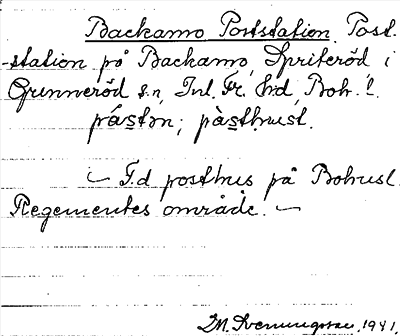 Backamo Poststation. Post-
station på Backamo, Spriteröd i
Grinneröd s:n, Inl. Fr. hd, Boh. l.
påstɔn; pàsthusl.
– F.d posthus på Bohusl.
Regementes område. –
M. Svenungsson 1941.